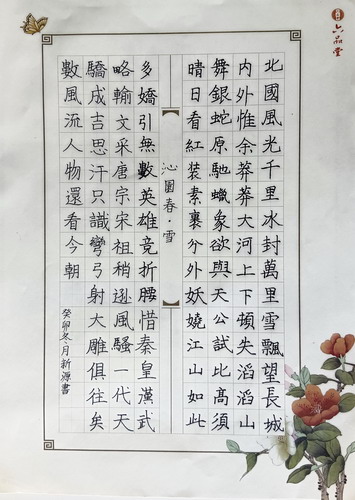 六品堂
北國風光千里冰封萬里雪飄望長城
内外惟余莽莽大河上下頓失滔滔山
舞銀蛇原馳蠟象欲與天公試比高須
晴日看紅裝素裹分外妖嬈江山如此
沁園春·雪
多嬌引無數英雄竞折腰惜秦皇漢武
略輸文采唐宗宋祖稍遜風騷一代天
驕成吉思汗只識彎弓射大雕俱往矣
數風流人物還看今朝
癸卯冬月新源書